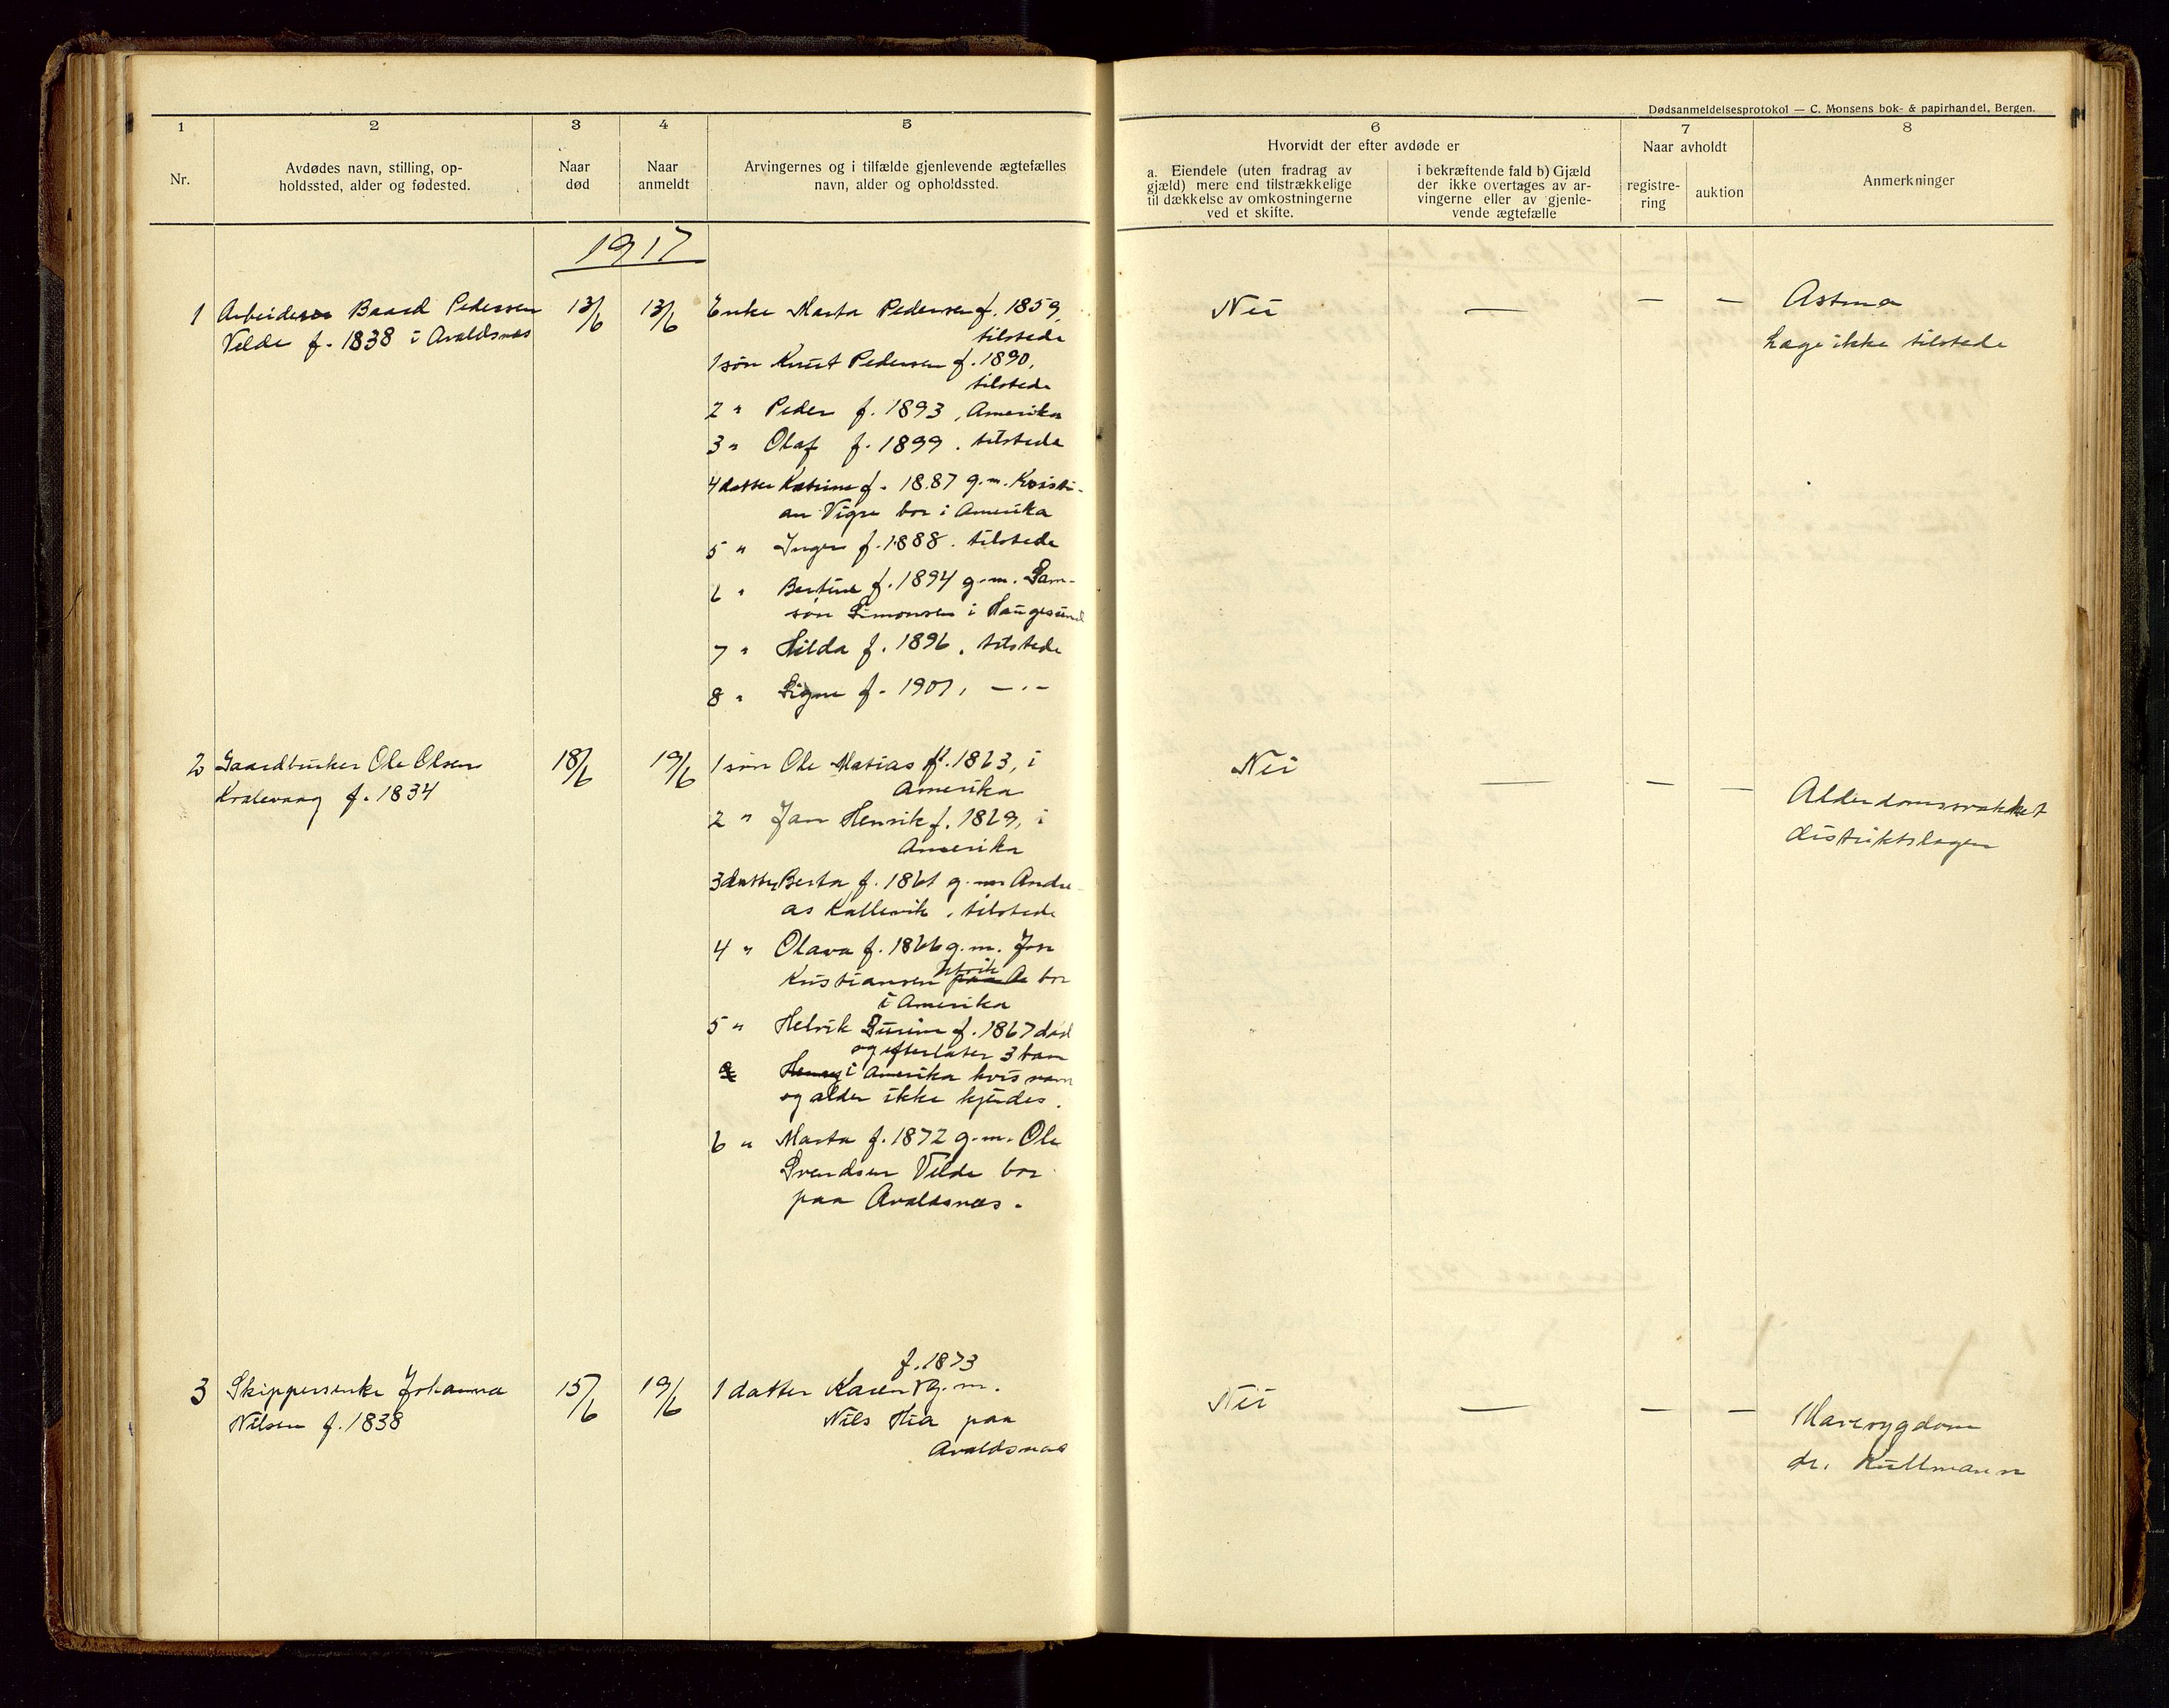 Dødsanmeldelsesprotokol — C. Monsens bok- & papirhandel, Bergen.
1 2 3 4 5 6 7 8
Nr.
Avdødes navn, stilling, op-
holdssted, alder og fødested.
Naar
død
Naar
anmeldt
Arvingernes og i tilfælde gjenlevende ægtefælles
navn, alder og opholdssted.
Hvorvidt der efter avdøde er
a. Eiendele (uten fradrag av
gjæld) mere end tilstrækkelige
til dækkelse av omkostningerne
ved et skifte.
i bekræftende fald b) Gjæld
der ikke overtages av ar-
vingerne eller av gjenle-
vende ægtefælle
Naar avholdt
registre-
ring
auktion
Anmerkninger
1917
1 Arbeider Baard Pedersen
Velde f. 1838 i Avaldsnes
13/6 13/6
Enke Marta Pedersen f. 1859,
tilstede
1 søn Knut Pedersen f. 1890,
tilstede
2 " Peder f. 1893, Amerika
3 " Olaf f. 1899, tilstede
4 datter Katrine f. 1887 g.m. Kristi-
an Vigre bor i Amerika
5 " Inger f. 1888. tilstede
6 " Bertine f. 1894 g.m. Sam-
son Simonsen i Haugesund
7 " Hilda f. 1896, tilstede
8 " Signe f. 1901, — " —
Nei — — —
Astma
Læge ikke tilstede
2 Gaardbruker Ole Olsen
Kvalevaag f. 1834
18/6 19/6
1 søn Ole Matias f. 1863, i
Amerika
2 " Jan Henrik f. 1869, i
Amerika
3 datter Berta f. 1861 g.m. Andre-
as Kallevik, tilstede
4 " Olava f. 1866 g.m. Jon
Kristiansen bor
i Amerika
5 " Helvik Surine f. 1867 død
og efterlater 3 barn
i Amerika hvis navn
og alder ikke kjendes.
6 " Marta f. 1872 g.m. Ole
Svendsen Velde bor
paa Avaldsnes.
Nei — — —
Alderdomssvakhet
distriktslægen
3 Skippersenke Johanna
Nilsen f. 1838
15/6 19/6
f. 1873
1 datter Karen g.m.
Nils Hia paa
Avaldsnes
Nei — — —
Mavesygdom
dr. Kullmann